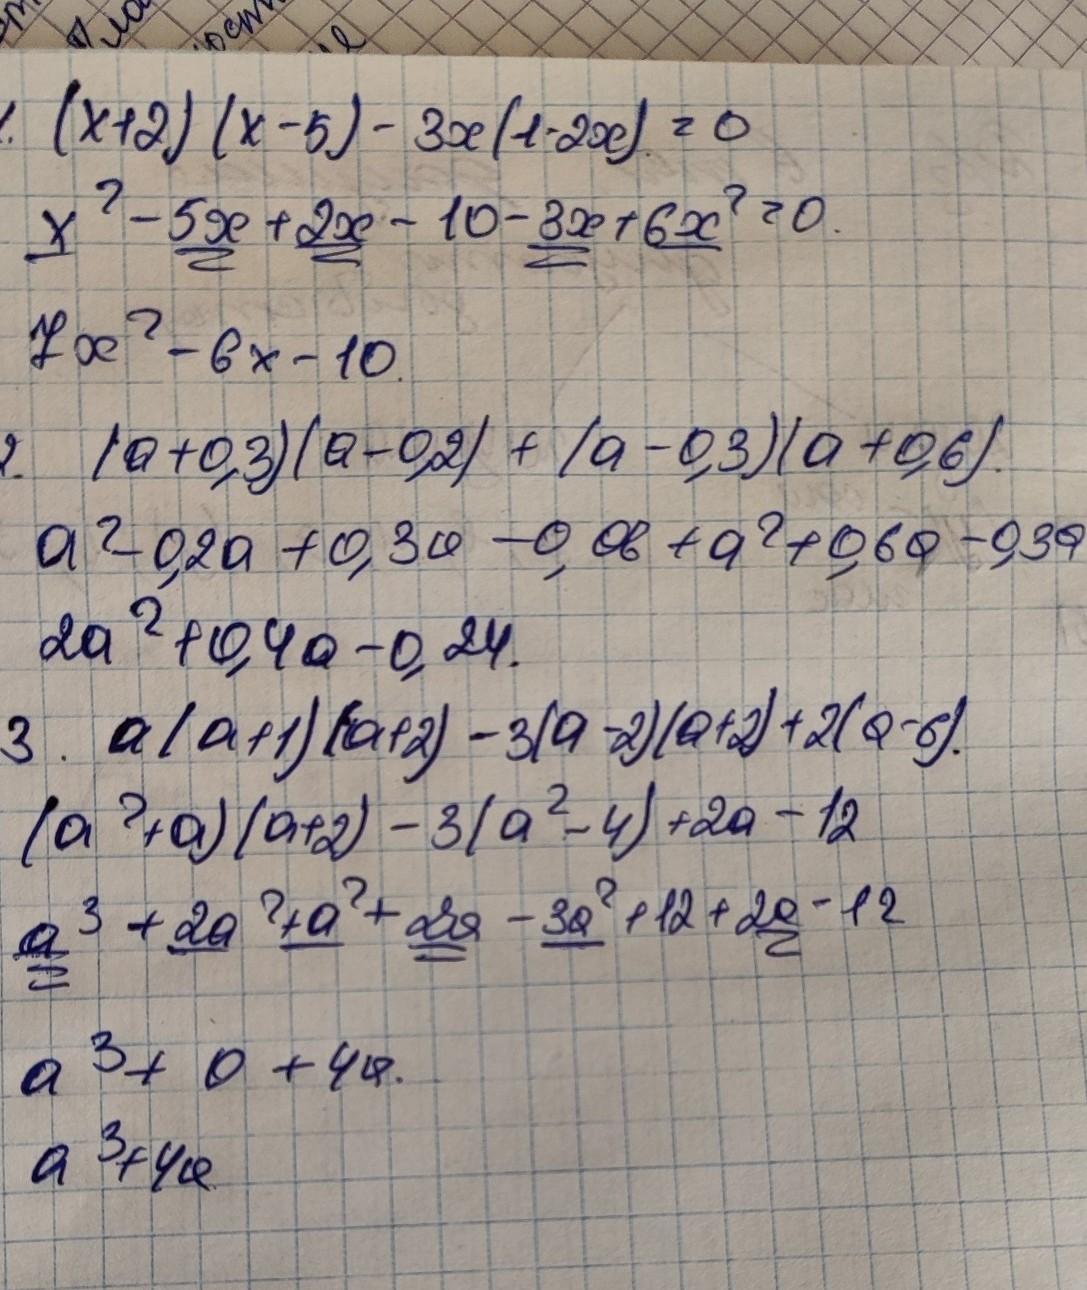 1. (x+2)(x-5) - 3x(1-2x) = 0
x² - 5x + 2x - 10 - 3x + 6x² = 0.
7x² - 6x - 10.
2. (a+0,3)(a-0,2) + (a-0,3)(a+0,6).
a² - 0,2a + 0,3a - 0,06 + a² + 0,6a - 0,3a
2a² + 0,4a - 0,24.
3. a(a+1)(a+2) - 3(a-2)(a+2) + 2(a-6).
(a²+a)(a+2) - 3(a²-4) + 2a - 12
a³ + 2a² + a² + 2a - 3a² + 12 + 2a - 12
a³ + 0 + 4a.
a³ + 4a